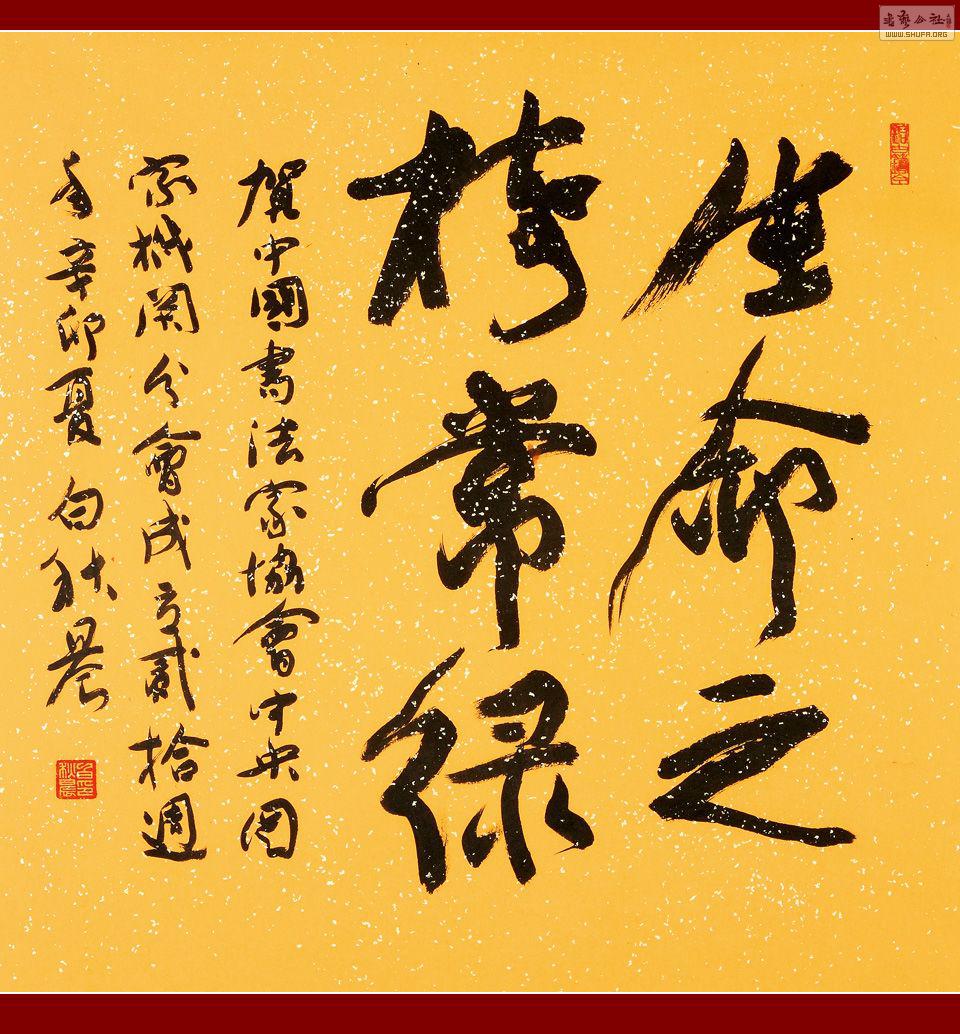 生命之
樹常綠
賀中國書法家協會中央国
家機関分會成立貳拾週
年辛卯夏白秋晨
書藝公社
WWW.SHUFA.ORG